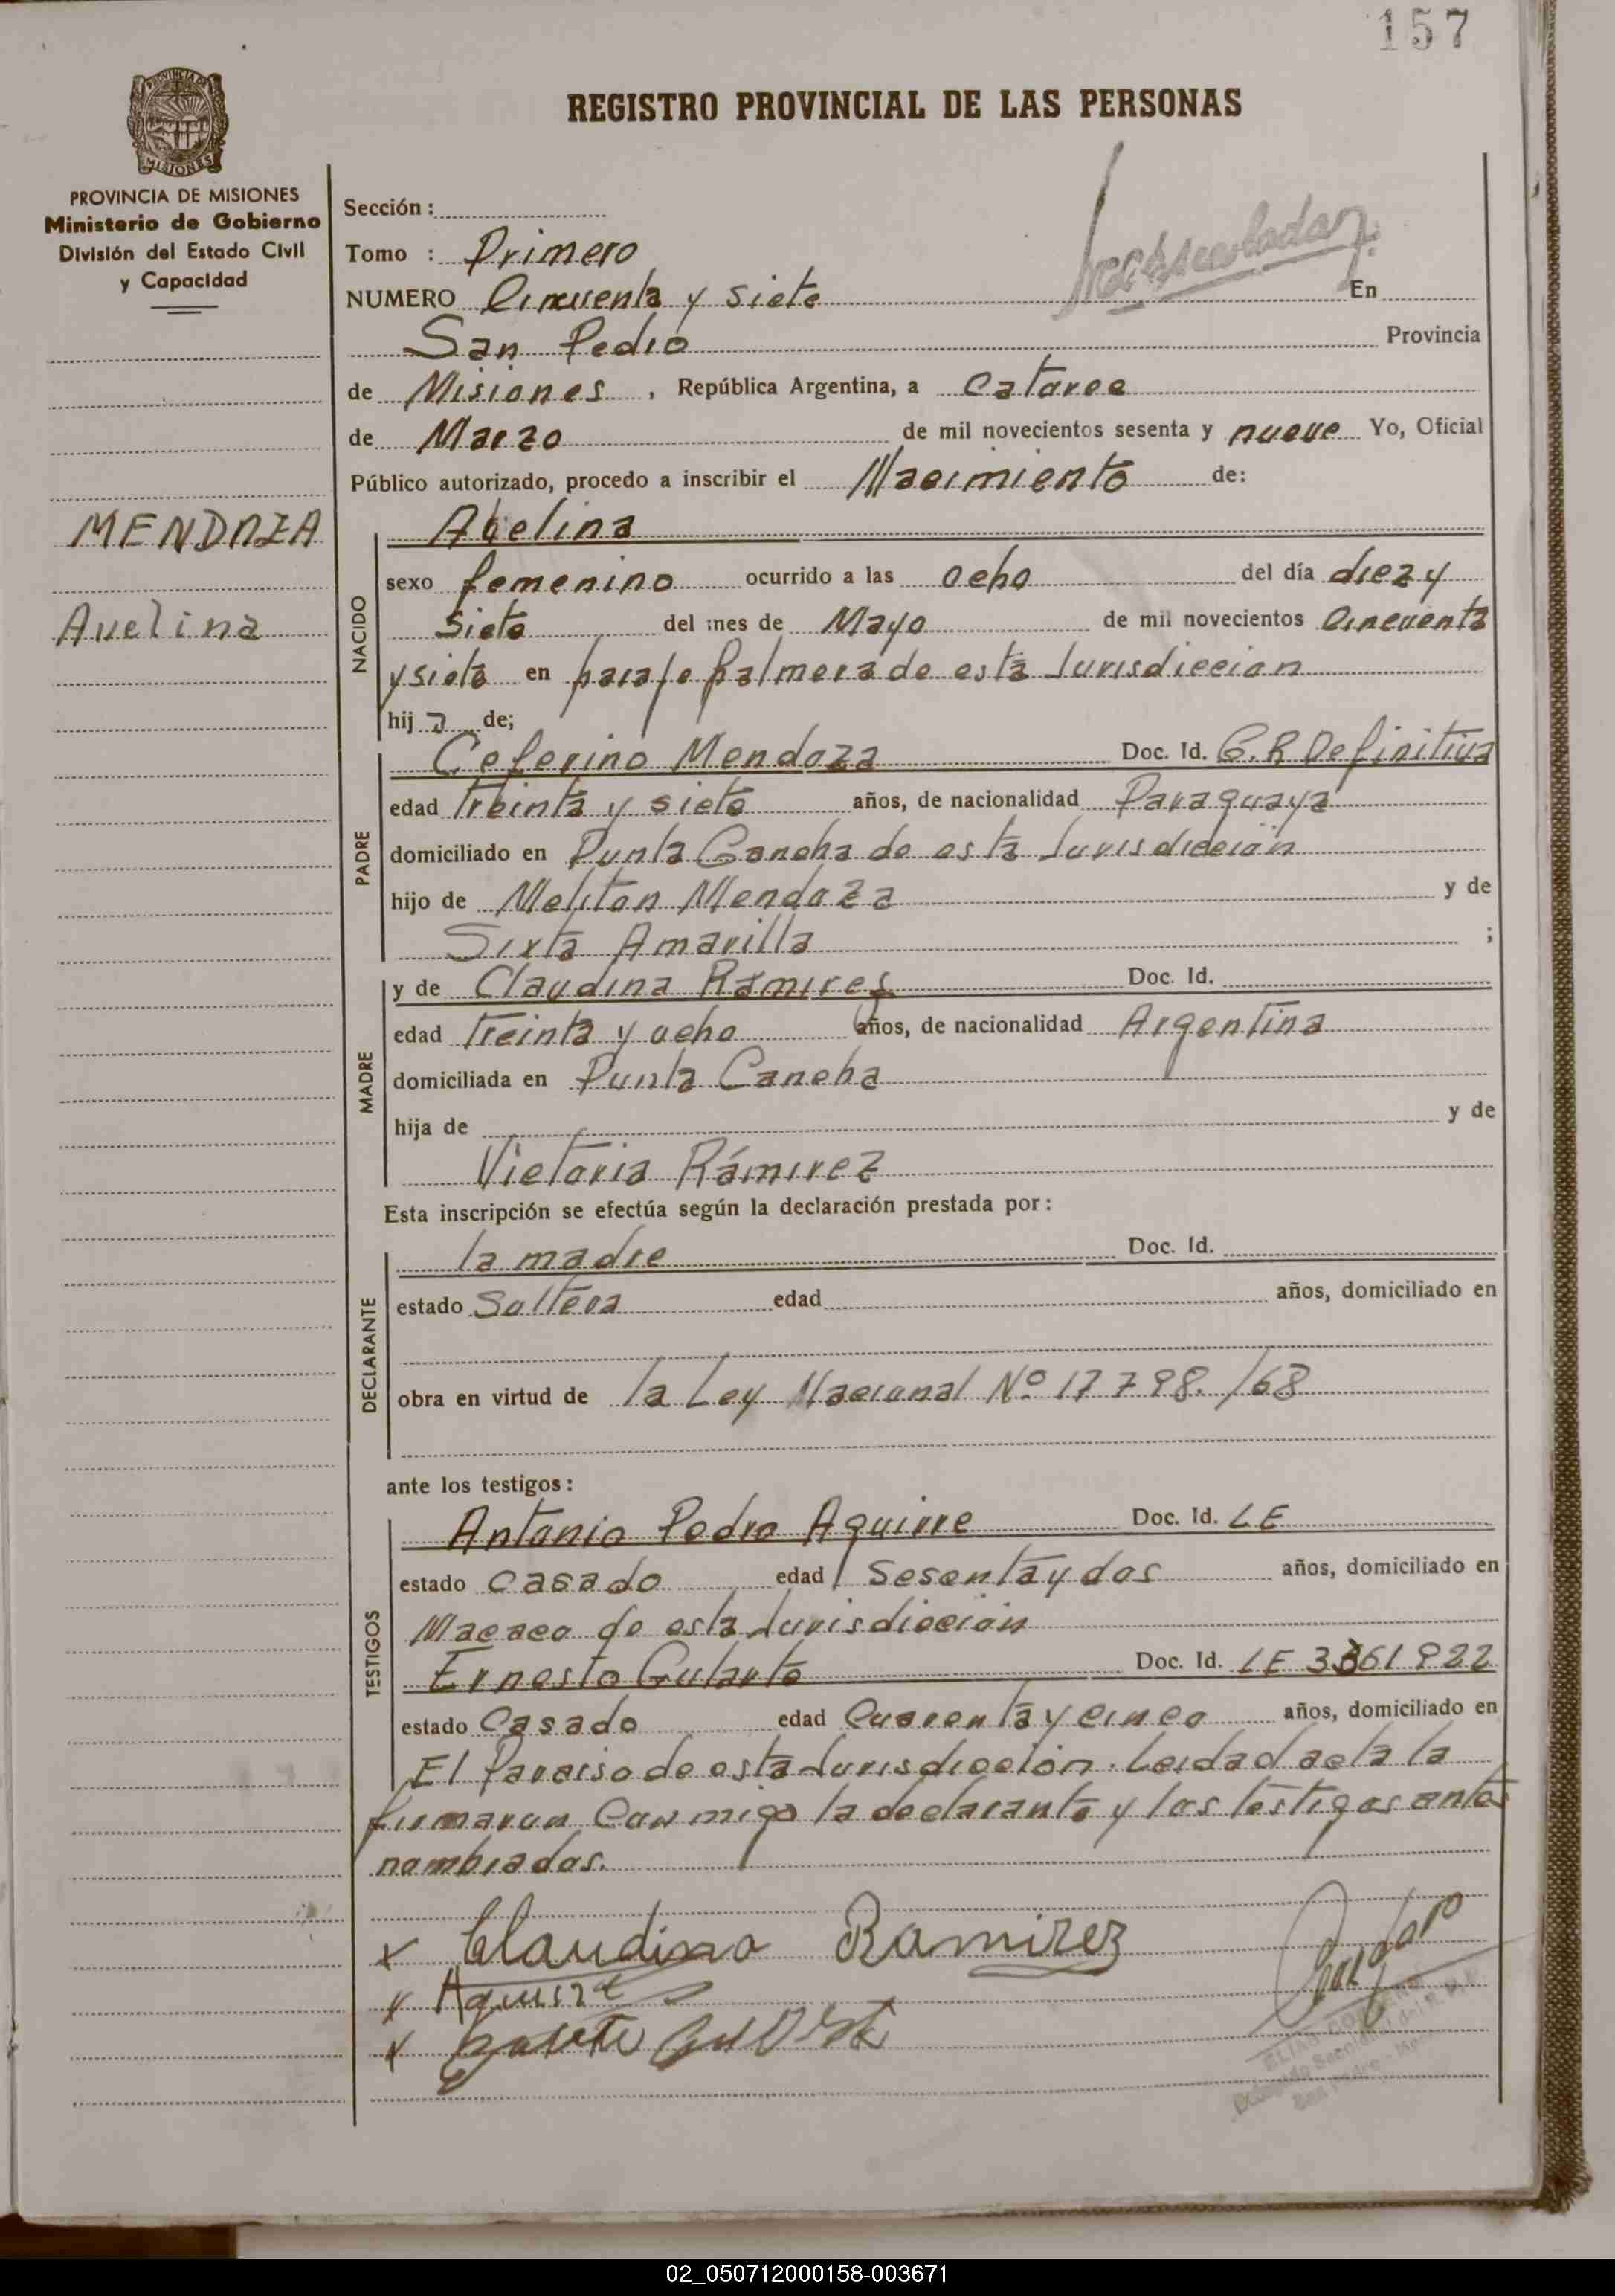 157
REGISTRO PROVINCIAL DE LAS PERSONAS
PROVINCIA DE MISIONES
MISIONES
PROVINCIA DE MISIONES
Ministerio de Gobierno
División del Estado Civil
y Capacidad
MENDOZA
Avelina
Sección :
Tomo : Primero
NUMERO Cincuenta y siete En
San Pedro Provincia
de Misiones , República Argentina, a Catorce
de Marzo de mil novecientos sesenta y nueve Yo, Oficial
Público autorizado, procedo a inscribir el Nacimiento de:
NACIDO
Abelina
sexo femenino ocurrido a las ocho del día diez y
siete del mes de Mayo de mil novecientos Cincuenta
y siete en paraje Palmera de esta Jurisdiccion
hij a de;
PADRE
Ceferino Mendoza Doc. Id. C.R Definitiva
edad treinta y siete años, de nacionalidad Paraguaya
domiciliado en Punta Cancha de esta Jurisdiccion
hijo de Meliton Mendoza y de
Sixta Amarilla ;
MADRE
y de Claudina Ramires Doc. Id.
edad treinta y ocho años, de nacionalidad Argentina
domiciliada en Punta Cancha
hija de y de
Victoria Rámirez
Esta inscripción se efectúa según la declaración prestada por :
DECLARANTE
la madre Doc. Id.
estado Soltera edad años, domiciliado en
obra en virtud de la Ley Nacional Nº 17798./68
ante los testigos :
TESTIGOS
Antonio Pedro Aguirre Doc. Id. LE
estado Casado edad sesenta y dos años, domiciliado en
Macaco de esta Jurisdiccion
Ernesto Gularte Doc. Id. LE 3361922
estado Casado edad Cuarenta y cinco años, domiciliado en
El Paraiso de esta Jurisdiccion. Leida el acta la
firmaron Conmigo la declarante y los testigos antes
nombrados.
x Claudina Ramirez
x Aguirre
x
02_050712000158-003671